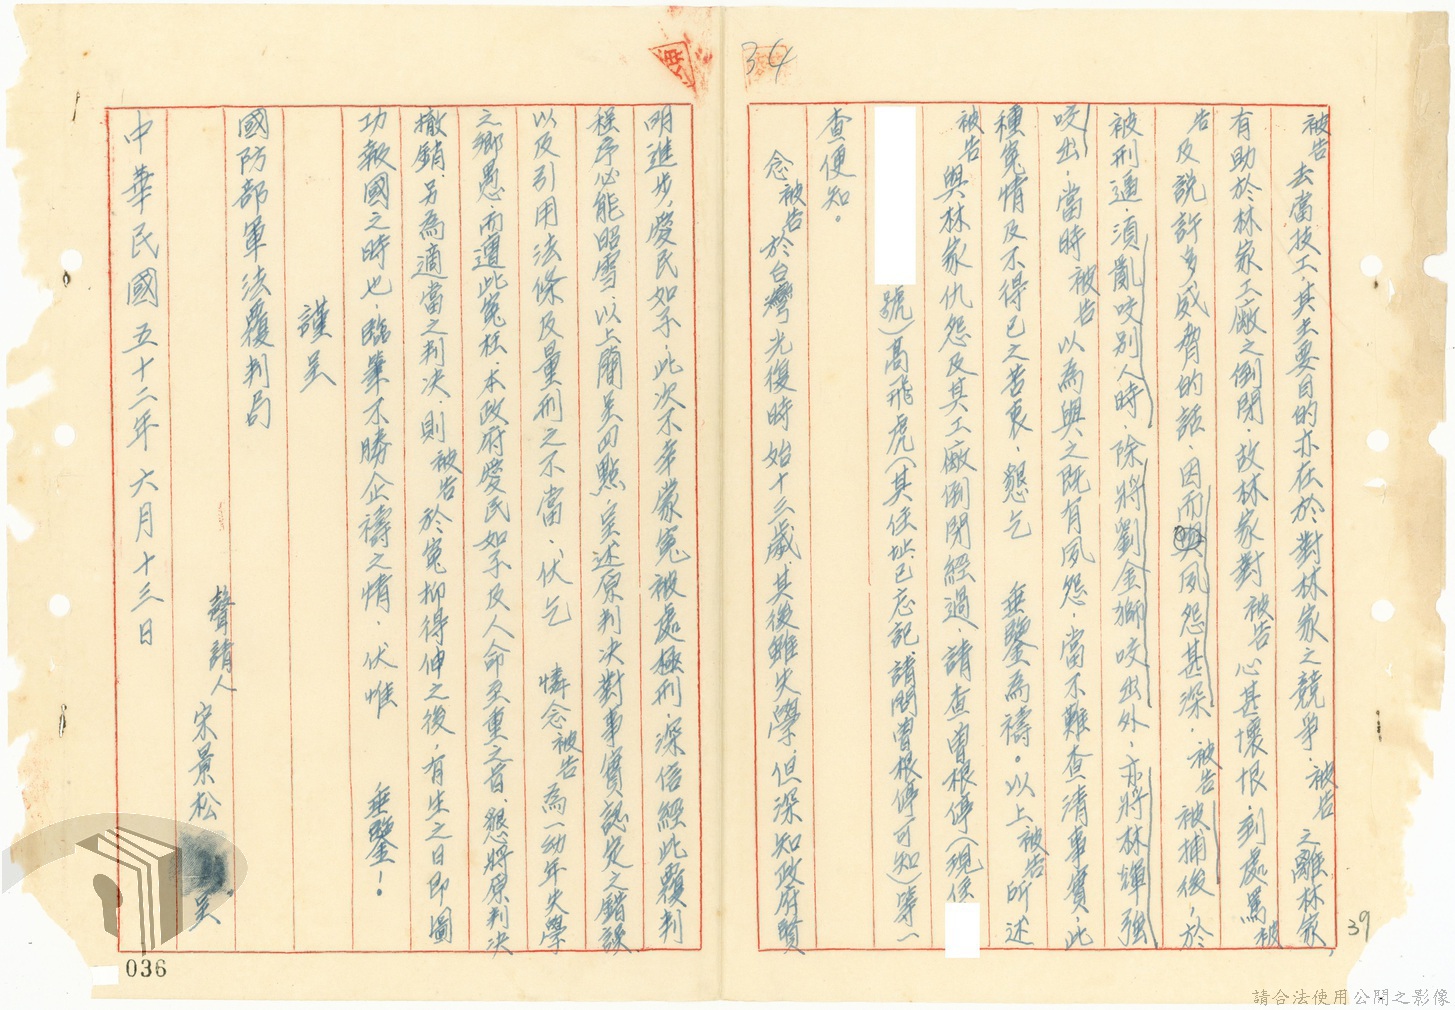 34
被告去當技工，其主要目的亦在於對林家之競爭，被告之離林家，
有助於林家工廠之倒閉，故林家對被告心甚懷恨，到處罵被
告及說許多威脅的話，因而與夙怨甚深，被告被捕後，於
被刑逼，須亂咬別人時，除將劉金獅咬出外，亦將林輝強
咬出，當時被告以為與之既有夙怨，當不難查清事實，此
種冤情及不得已之苦衷，懇乞 垂鑒為禱。以上被告所述
被告與林家仇怨及其工廠倒閉經過，請查曾根停（現住
號）高飛虎（其住址已忘記，請問曾根停可知）等一
查便知。
念被告於台灣光復時始十三歲，其後雖失學，但深知政府賢
明進步，愛民如子，此次不幸蒙冤被處極刑，深信經此覆判
程序必能昭雪，以上簡呈四點，呈述原判決對事實認定之錯誤
以及引用法條及量刑之不當，伏乞 憐念被告為一幼年失學
之鄉愚，而遭此冤枉，本政府愛民如子及人命至重之旨，懇將原判決
撤銷，另為適當之判決，則被告於冤抑得伸之後，有生之日即圖
功報國之時也，臨筆不勝企禱之情，伏惟 垂鑒！
謹呈
國防部軍法覆判局
聲請人 宋景松 呈
中華民國五十二年六月十三日
39
036
請合法使用公開之影像